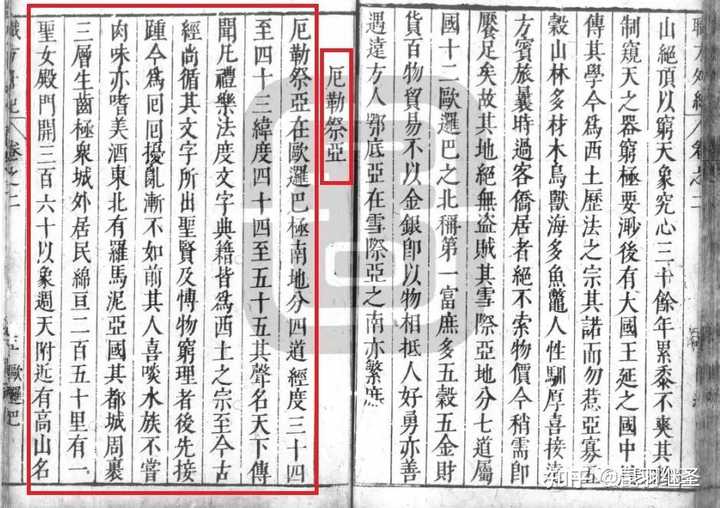 職方外紀 卷之二
山絕頂以窮天象究心三十餘年累黍不爽其
制窺天之器窮極要渺後有大國王延之國中
傳其學今爲西土曆法之宗其諾而勿惹亞寡五
穀山林多材木鳥獸海多魚鼈人性馴厚喜接遠
方賓旅曩時過客僑居者絕不索物價今稍需即
饜足矣故其地絕無盜賊其雪際亞地分七道屬
國十二歐邏巴之北稱第一富庶多五穀五金財
貨百物貿易不以金銀卽以物相抵人好勇亦善
遇遠方人鄂底亞在雪際亞之南亦繁庶
厄勒祭亞
厄勒祭亞在歐邏巴極南地分四道經度三十四
至四十三緯度四十四至五十五其聲名天下傳
聞凡禮樂法度文字典籍皆爲西土之宗至今古
經尚循其文字所出聖賢及博物窮理者後先接
踵今爲回回擾亂漸不如前其人喜啖水族不嘗
肉味亦嗜美酒東北有羅馬泥亞國其都城周裹
三層生齒極衆城外居民綿亘二百五十里有一
聖女殿門開三百六十以象週天附近有高山名
職方外紀 卷之二 歐邏巴
知乎 @晨羽继圣